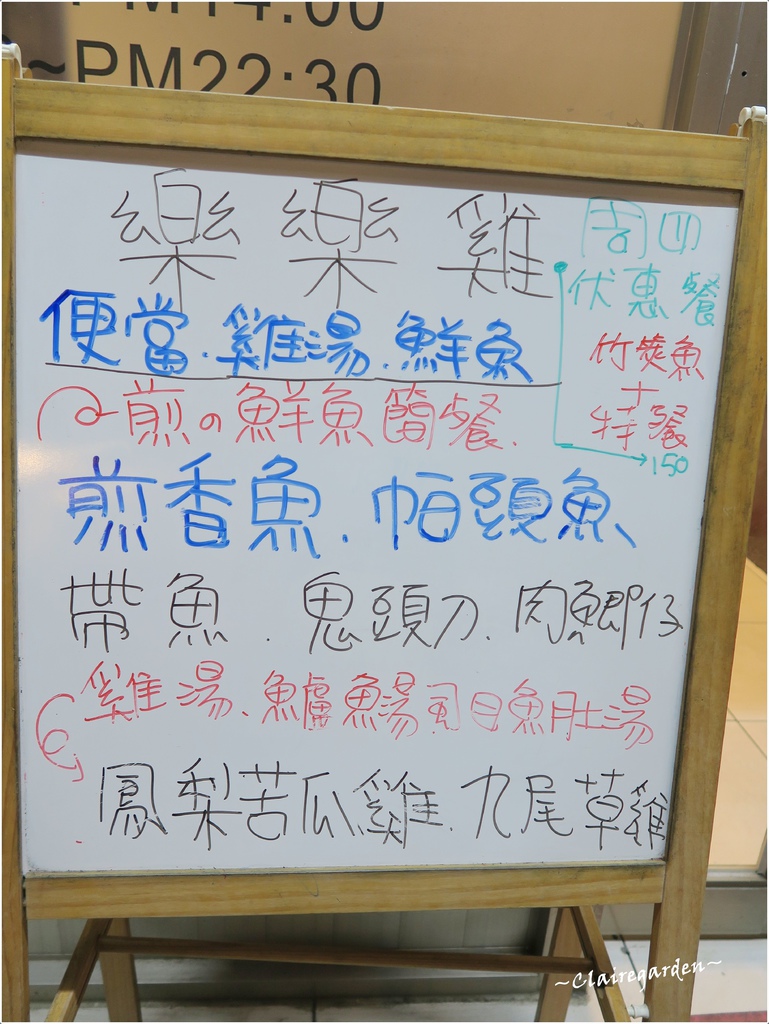 PM14:00
~PM22:30
樂樂雞
便當.雞湯.鮮魚
煎の鮮魚簡餐.
煎香魚.帕頭魚
帶魚.鬼頭刀.肉鯽仔
雞湯.鱸魚湯虱目魚肚湯
鳳梨苦瓜雞.九尾草雞
周四
伏惠餐
竹筴魚
+
特餐
150
~Clairegarden~